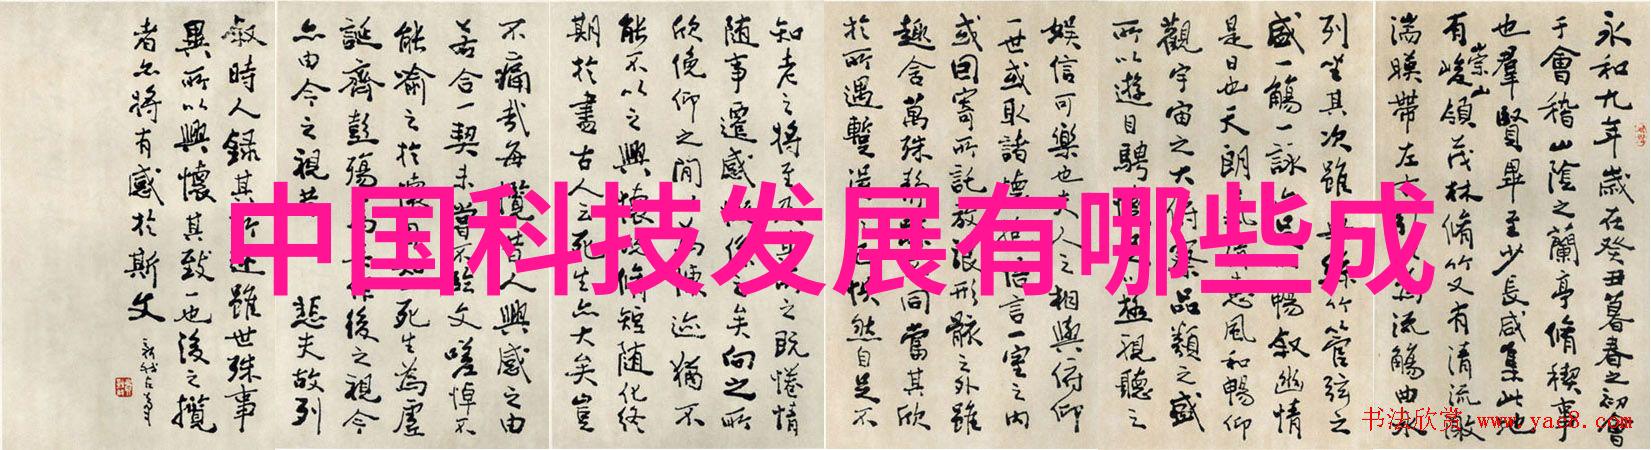 永和九年歲在癸丑暮春之初會
于會稽山陰之蘭亭脩稧事
也羣賢畢至少長咸集此地
有崇山峻領茂林脩竹又有清流激
湍暎帶左右引以為流觴曲水
列坐其次雖無絲竹管弦之
盛一觴一詠亦足以暢敘幽情
是日也天朗氣清惠風和暢仰
觀宇宙之大俯察品類之盛
所以遊目騁懷足以極視聽之
娛信可樂也夫人之相與俯仰
一世或取諸懷抱悟言一室之內
或因寄所託放浪形骸之外雖
趣舍萬殊靜躁不同當其欣
於所遇蹔得於己怏然自足不
知老之將至及其所之既惓情
随事遷感慨係之矣向之所
欣俛仰之間以為陳迹猶不
能不以之興懷況脩短随化終
期於盡古人云死生亦大矣豈
不痛哉每攬昔人興感之由
若合一契未嘗不臨文嗟悼不
能喻之於懷固知一死生為虛
誕齊彭殤為妄作後之視今
亦由今之視昔悲夫故列
敘時人錄其所述雖世殊事
異所以興懷其致一也後之攬
者亦將有感於斯文
中国科技发展有哪些成
书法欣赏 www.yac8.com